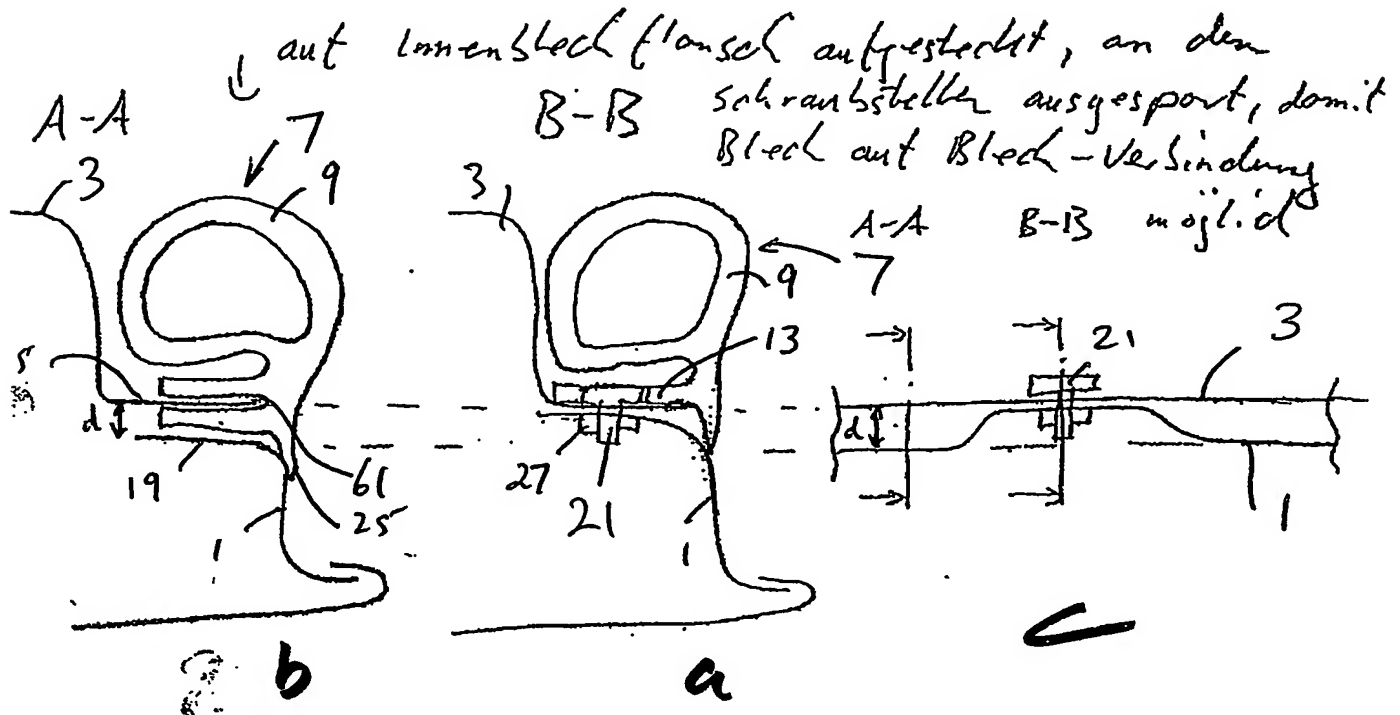 auf Innenblechflansch aufgesteckt, an den
Schraubstellen ausgespart, damit
Blech auf Blech-Verbindung
möglich
A-A
7
3
9
5
d
19
61
25
1
b
B-B
3
9
7
13
27
21
1
a
A-A B-B
21
3
d
1
c